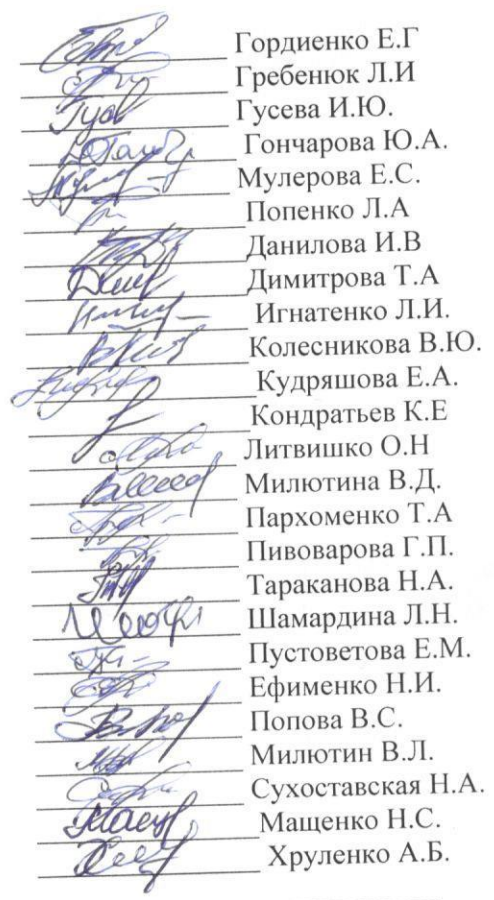 Гордиенко Е.Г
Гребенюк Л.И
Гусева И.Ю.
Гончарова Ю.А.
Мулерова Е.С.
Попенко Л.А
Данилова И.В
Димитрова Т.А
Игнатенко Л.И.
Колесникова В.Ю.
Кудряшова Е.А.
Кондратьев К.Е
Литвишко О.Н
Милютина В.Д.
Пархоменко Т.А
Пивоварова Г.П.
Тараканова Н.А.
Шамардина Л.Н.
Пустоветова Е.М.
Ефименко Н.И.
Попова В.С.
Милютин В.Л.
Сухоставская Н.А.
Мащенко Н.С.
Хруленко А.Б.